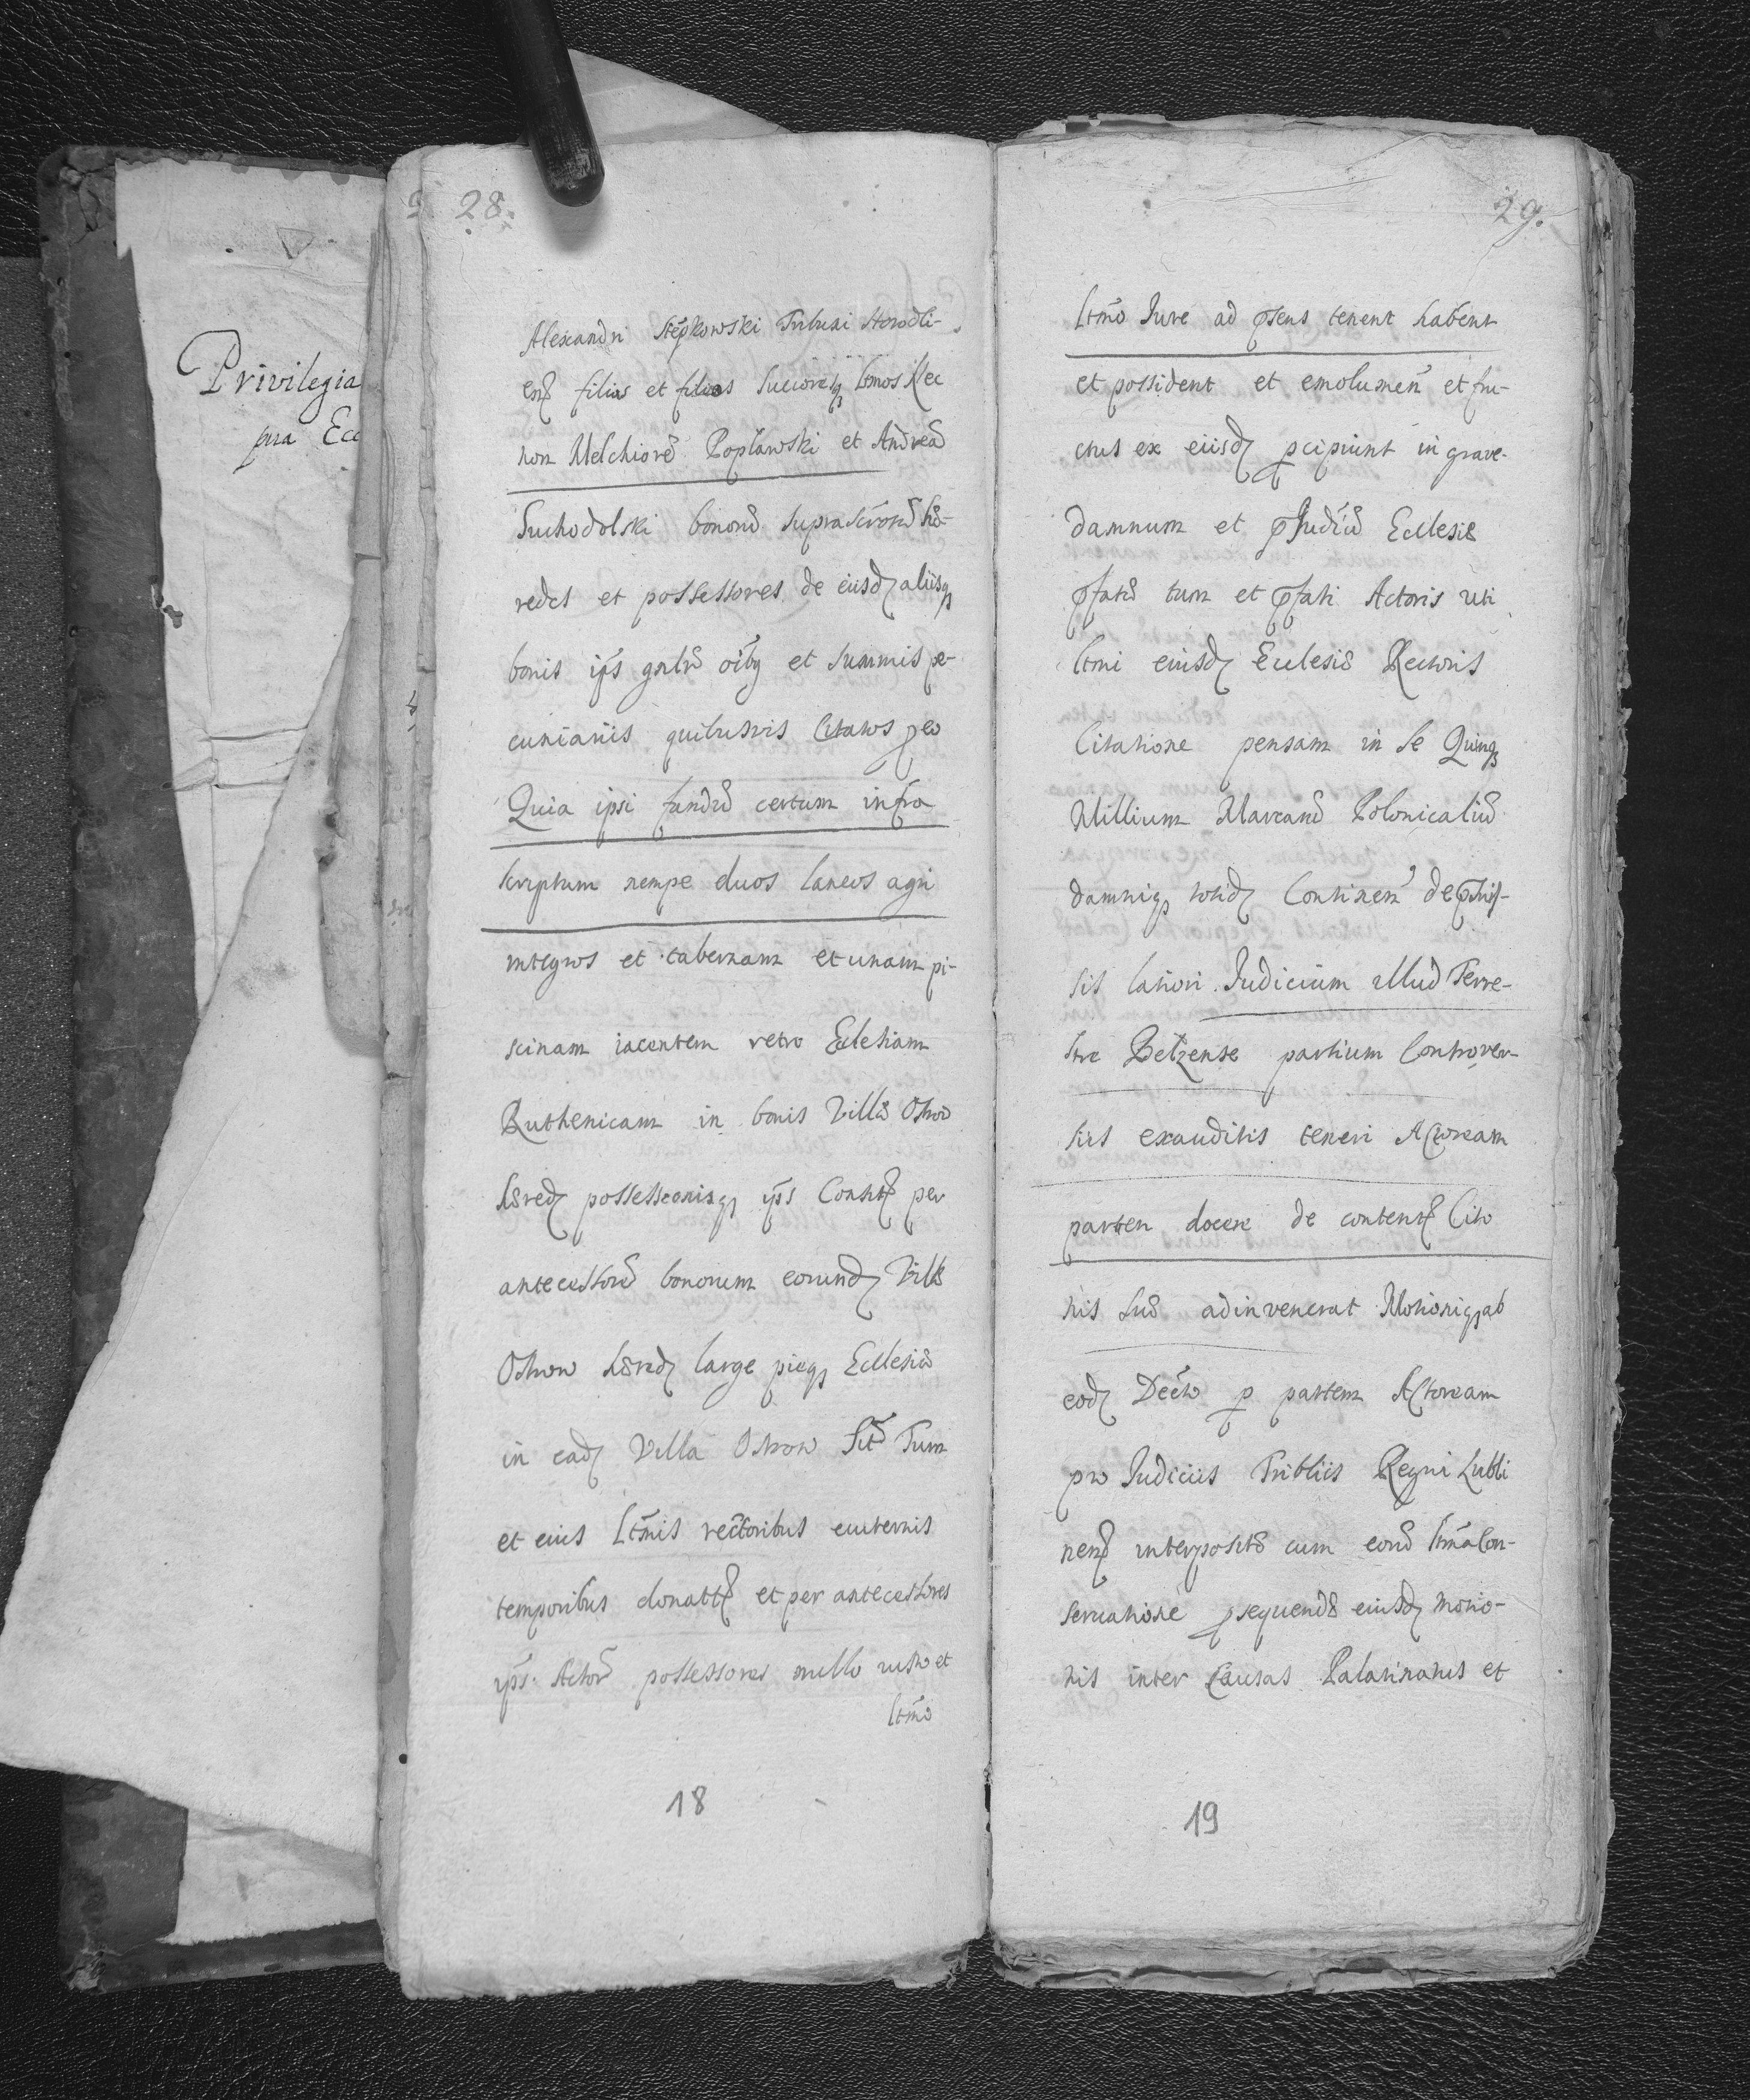 Privilegia
pra Ecc
28.
Alexandri Stępkowski Tribuni Horodli-
enſ filios et filias Succoresq ltmos Nec
non Melchiorē Popławski et Andreā
Suchodolski bonorū supraſcrōrū hæ-
redes et possessores de eiisd aliisq
bonis ip̄s gnlr̄ oībq et summis pe-
cuniariis quibusvis Citatos peo
Quia ipsi fundū certum infra
scriptum nempe duos laneos agri
integros et tabernam et unam pi-
scinam iacentem retro Ecclesiam
Ruthenicam in bonis Villæ Ostrow
hæred possessionisq ip̄s Consit per
antecessorū bonorum eorund Villæ
Ostrow hæred large pieq Ecclesiæ
in ead Villa Ostrow Sitæ Tum
et eius Ltmis rectoribus euiternis
temporibus donatt et per antecessores
ip̄s Actor̄ possessores nullo iusto et
ltmo
18
29.
ltmo Iure ad pn̄sens tenent habent
et possident et emolumen et fru-
ctus ex eiisd pcipiunt in grave
damnum et pIudiū Ecclesiæ
pfatæ tum et pfati Actoris uti
ltmi eiusd Ecclesiæ Rectoris
Citatione pensam in se Quinq
Millium Marcarū Polonicaliū
damniq totid Continen de pmis-
sis latiori Iudicium illud Terre-
stre Betzense partium Controver-
siis exauditis teneri Actoream
partem docere de content Cito
nis suæ adinvenerat Motioniq ab
eod Decto p partem Actoream
pro Iudiciis Triblis Regni Lubli
nenſ interpositæ cum eorū ltmā Con-
servatione psequendæ eiusd motio-
nis inter Causas Palatinatus et
19